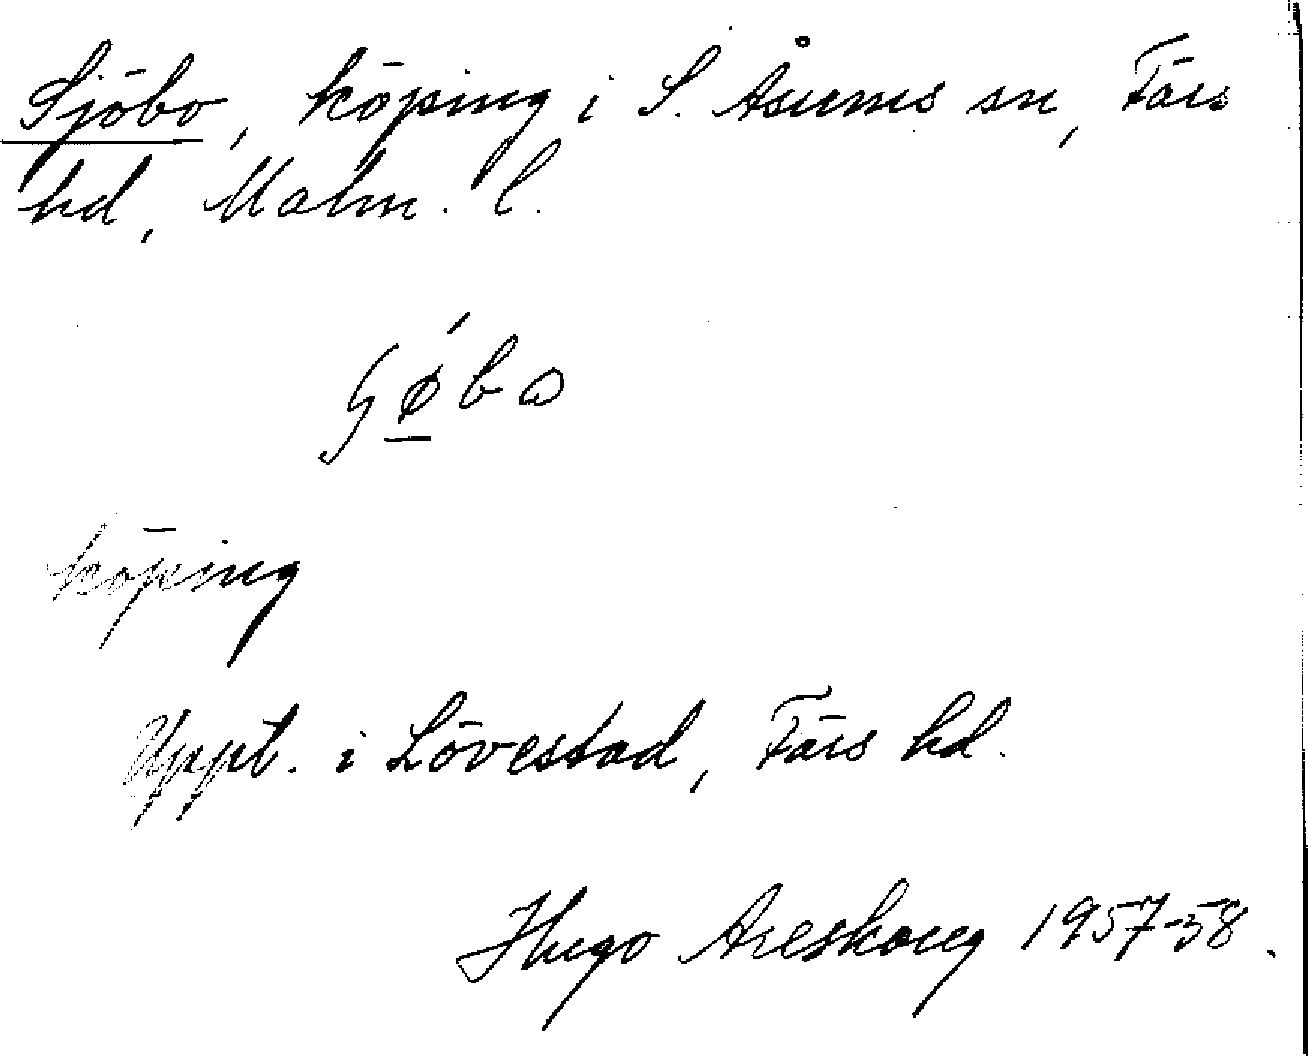 Sjöbo, köping i S. Åsums sn, Färs
hd, Malm. l.
köping
Uppt. i Lövestad, Färs hd.
Hugo Areskoug 1957-58.